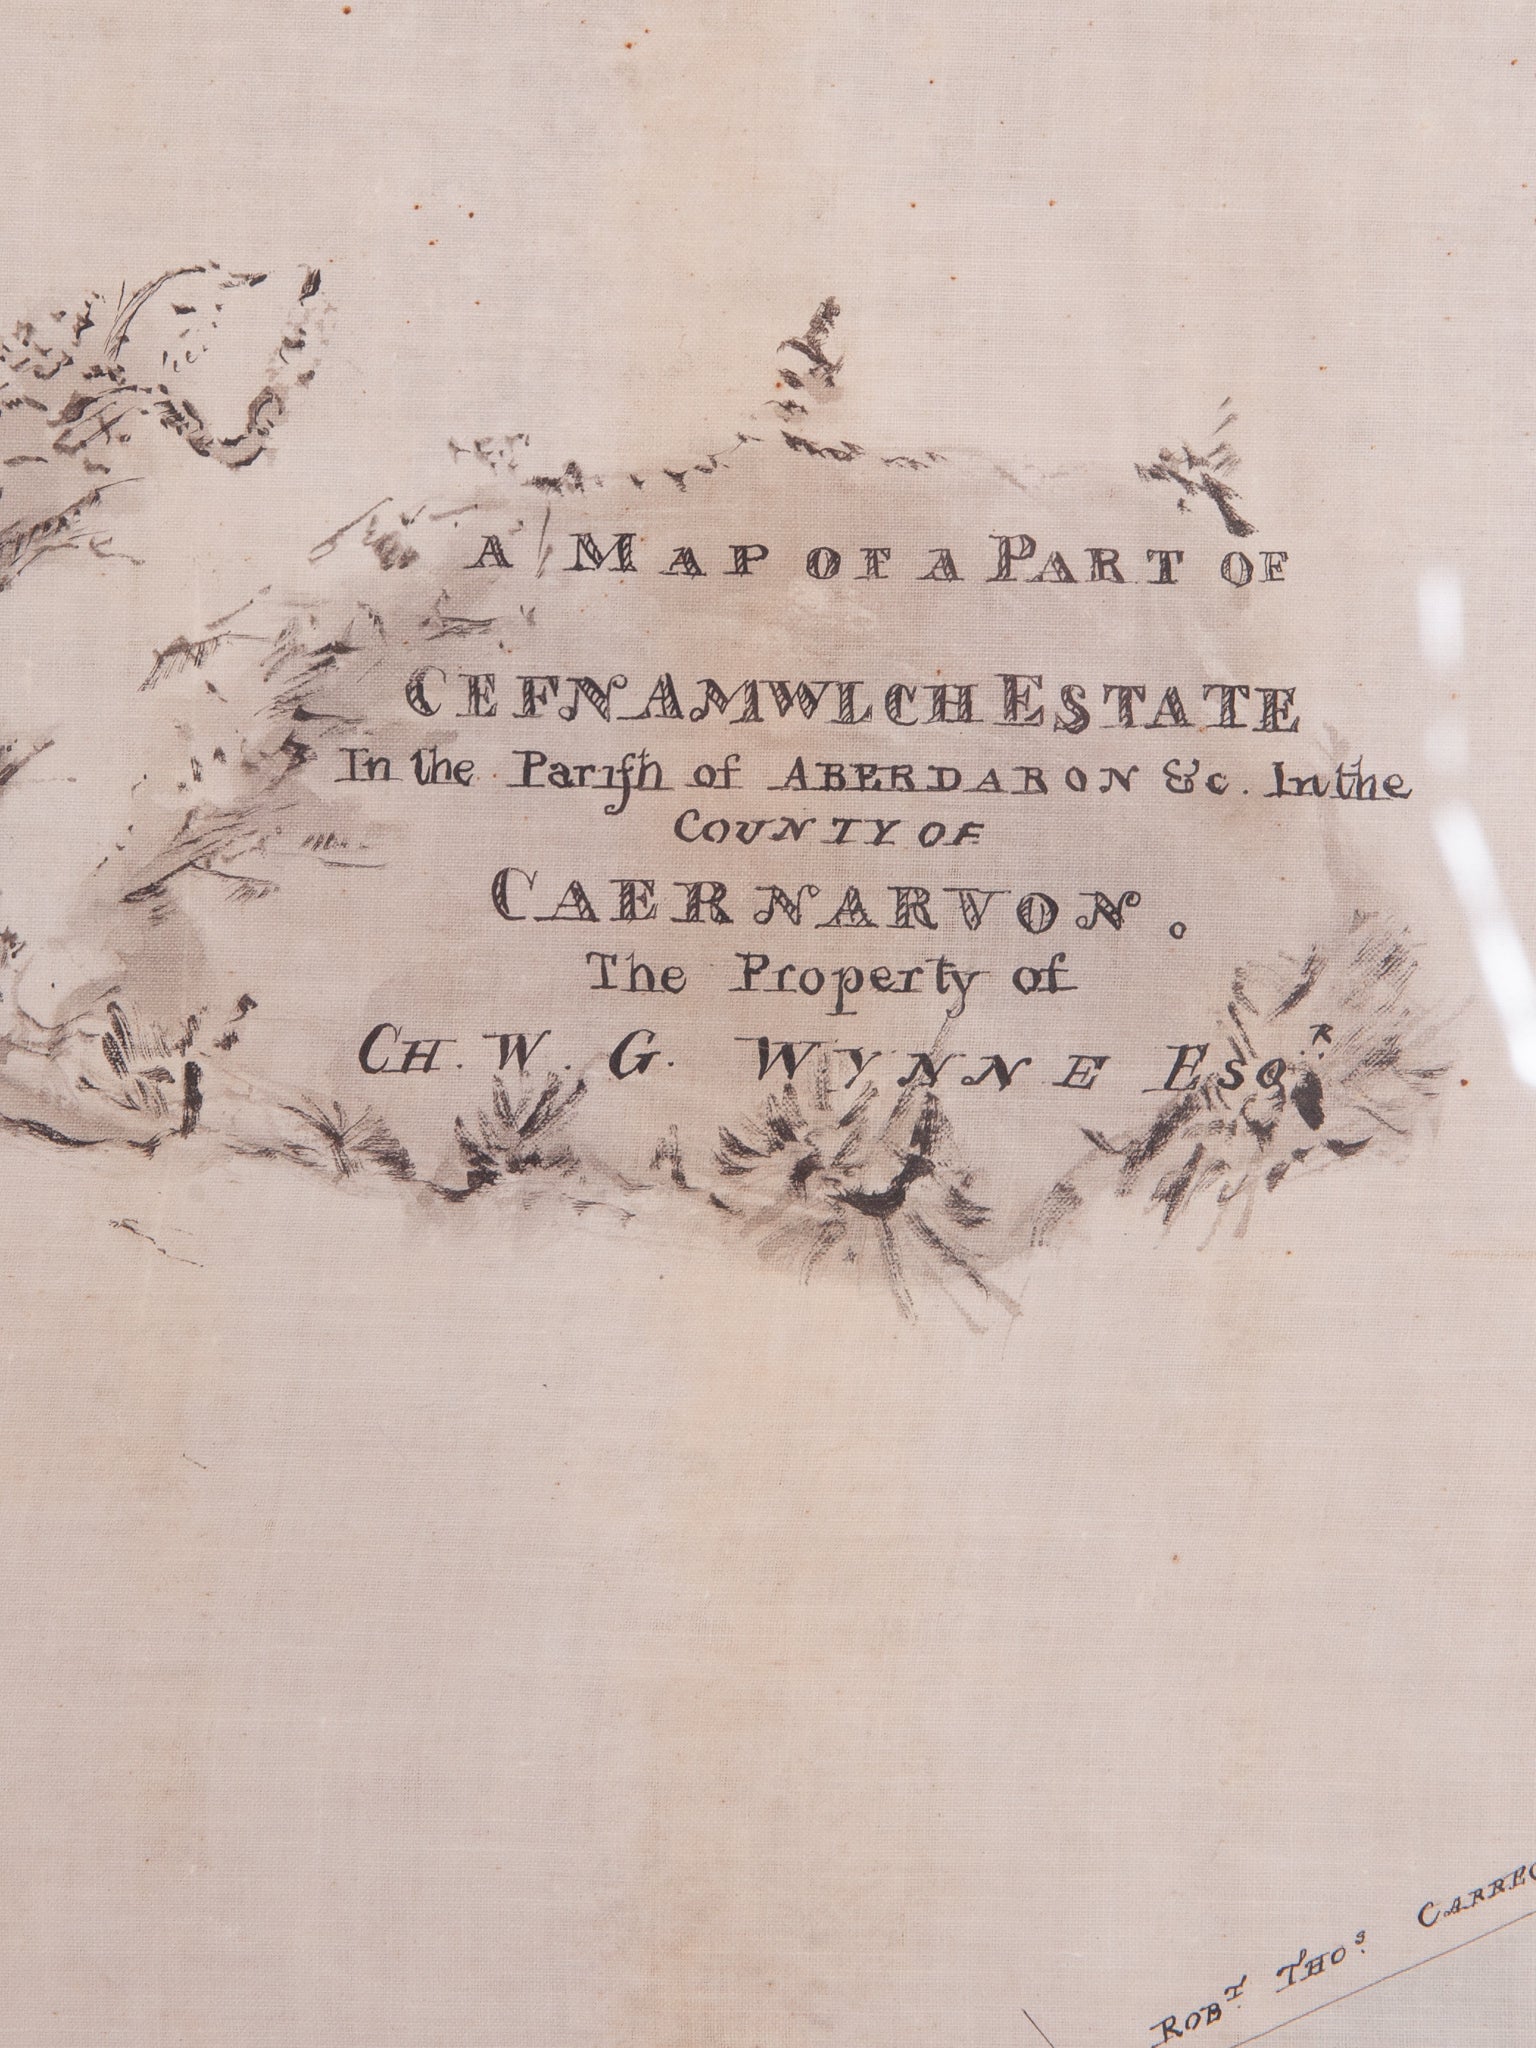 A MAP OF A PART OF
CEFNAMWLCH ESTATE
In the Pariſh of ABERDARON &c. In the
COUNTY OF
CAERNARVON.
The Property of
CH. W. G. WYNNE ESQ.R
ROB.T THO.S CARREG